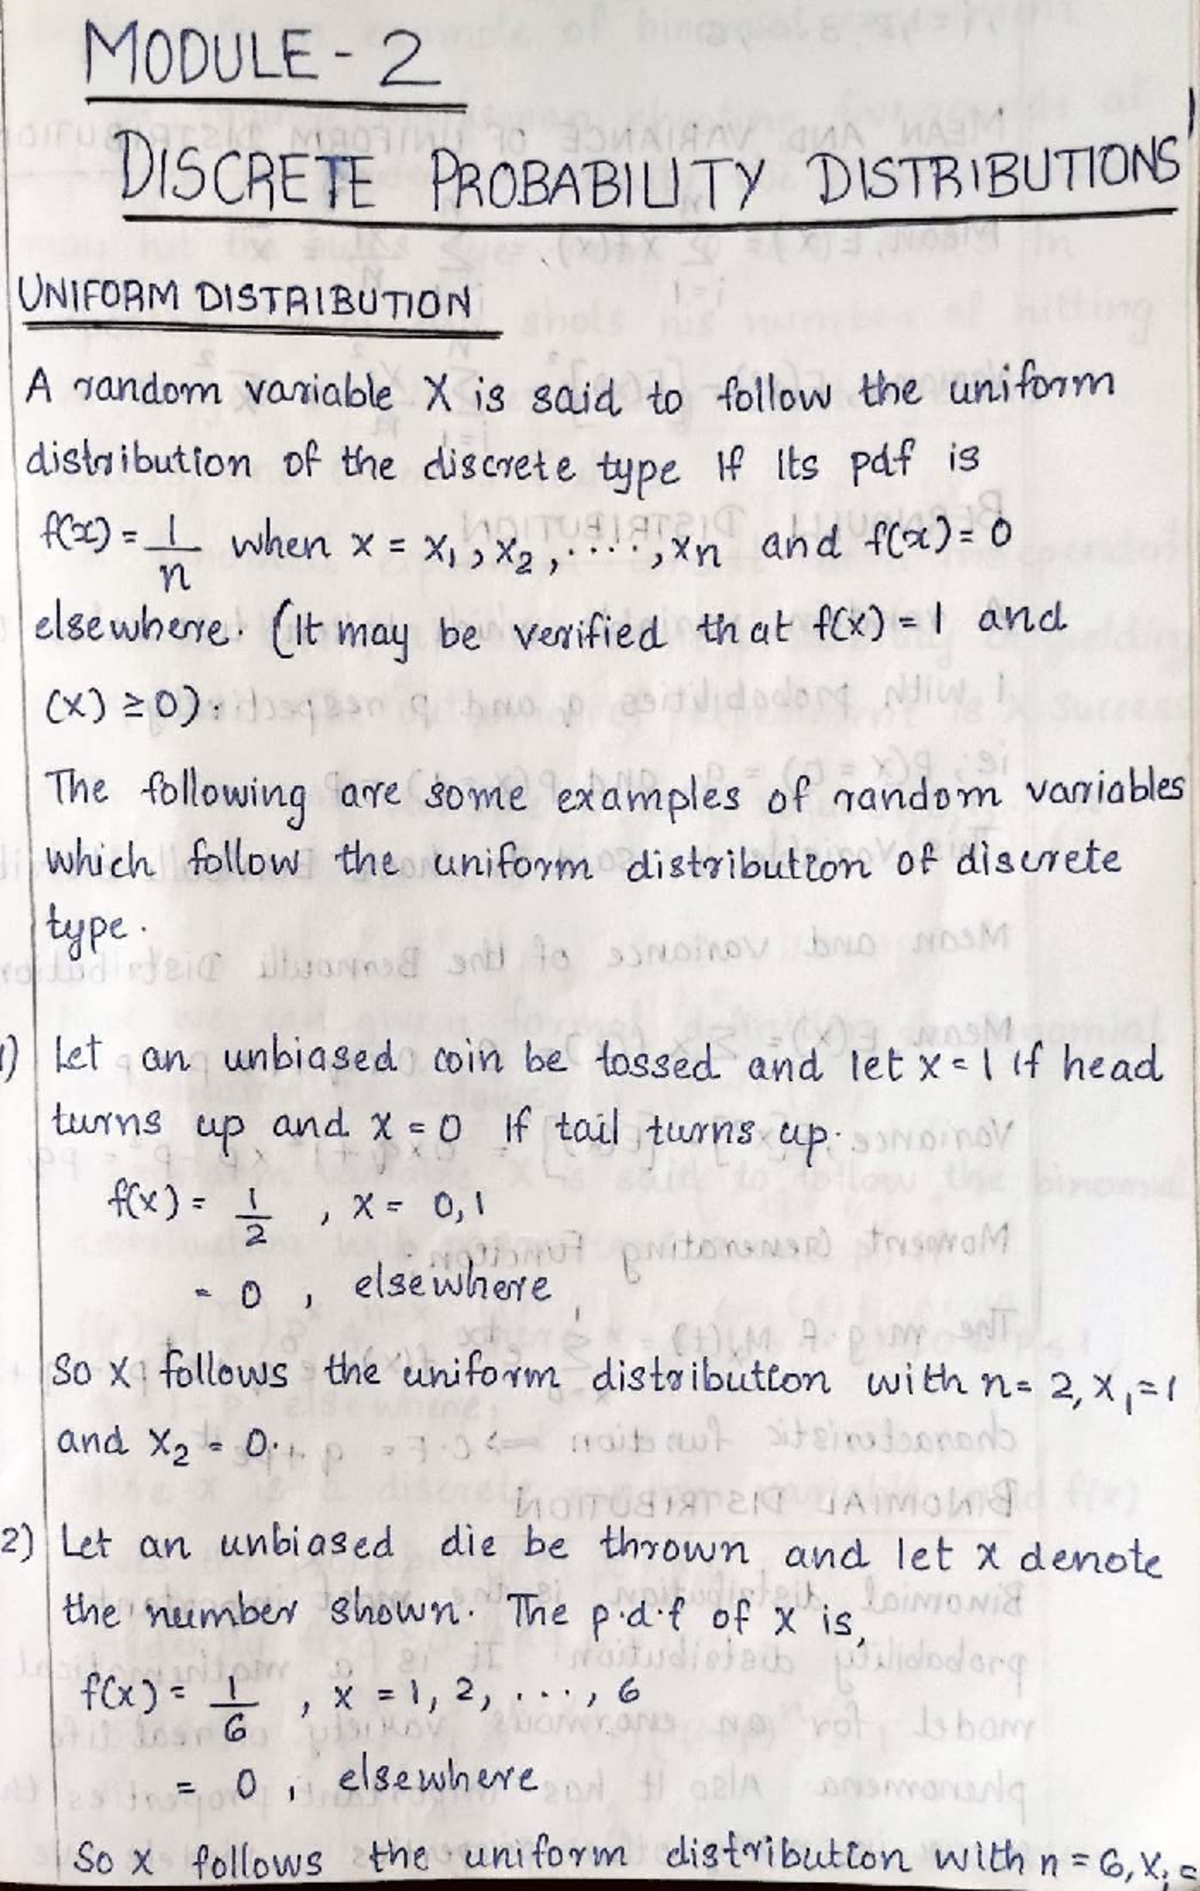 MODULE - 2
DISCRETE PROBABILITY DISTRIBUTIONS
UNIFORM DISTRIBUTION
A random variable X is said to follow the uniform
distribution of the discrete type if its pdf is
f(x) = 1/n when x = x₁, x₂, ...., xn and f(x) = 0
elsewhere. (It may be verified that f(x) = 1 and
(x) ≥ 0).
The following are some examples of random variables
which follow the uniform distribution of discrete
type.
1) Let an unbiased coin be tossed and let x = 1 if head
turns up and x = 0 if tail turns up.
f(x) = 1/2 , x = 0, 1
= 0 , elsewhere
So X follows the uniform distribution with n = 2, x₁ = 1
and x₂ = 0.
2) Let an unbiased die be thrown and let x denote
the number shown. The p.d.f of x is,
f(x) = 1/6 , x = 1, 2, ..., 6
= 0 , elsewhere
So x follows the uniform distribution with n = 6, xᵢ =